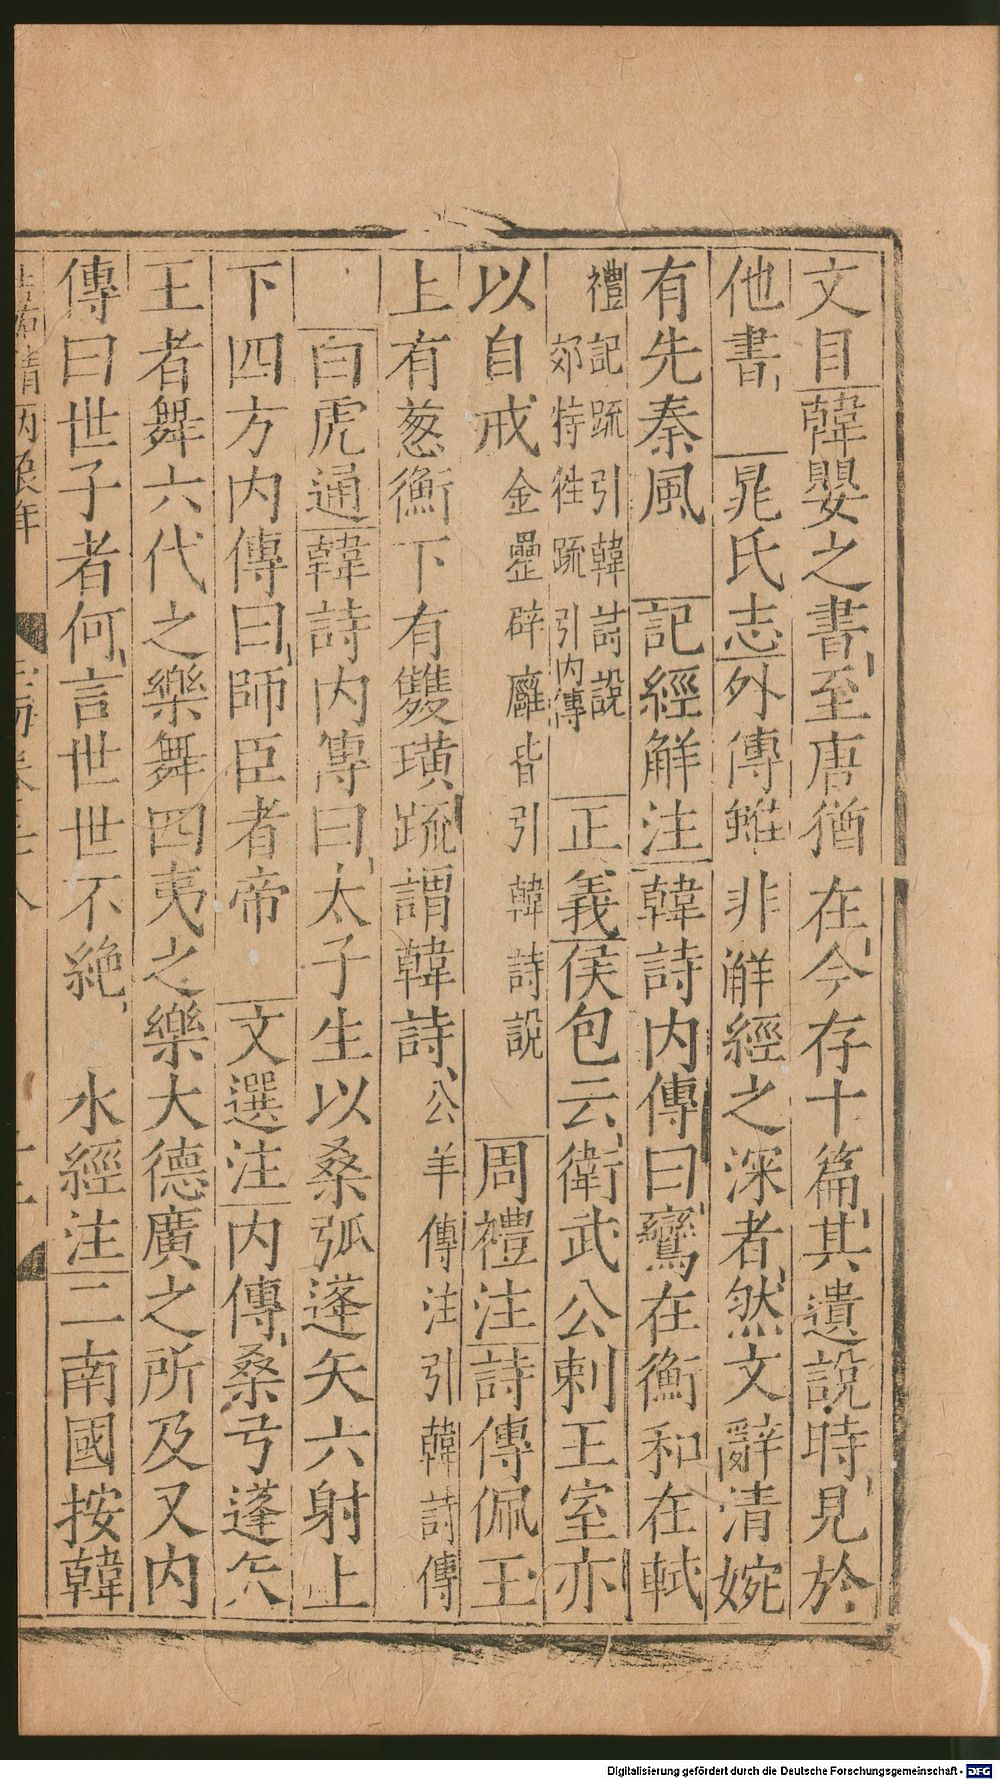 文目韓嬰之書至唐猶在今存十篇其遺説時見於
他書 晁氏志外傳雖非解經之深者然文辭清婉
有先秦風 記經解注韓詩内傳曰鸞在衡和在軾
禮記疏引韓詩説
郊特牲疏引内傳
正義侯包云衛武公刺王室亦
以自戒
金罍辟廱皆引韓詩説
周禮注詩傳佩玉
上有葱衡下有雙璜疏謂韓詩
公羊傳注引韓詩傳
白虎通韓詩内傳曰太子生以桑弧蓬矢六射上
下四方内傳曰師臣者帝 文選注内傳桑弓蓬矢
王者舞六代之樂舞四夷之樂大德廣之所及又内
傳曰世子者何言世世不絶 水經注二南國按韓
Digitalisierung gefördert durch die Deutsche Forschungsgemeinschaft - DFG